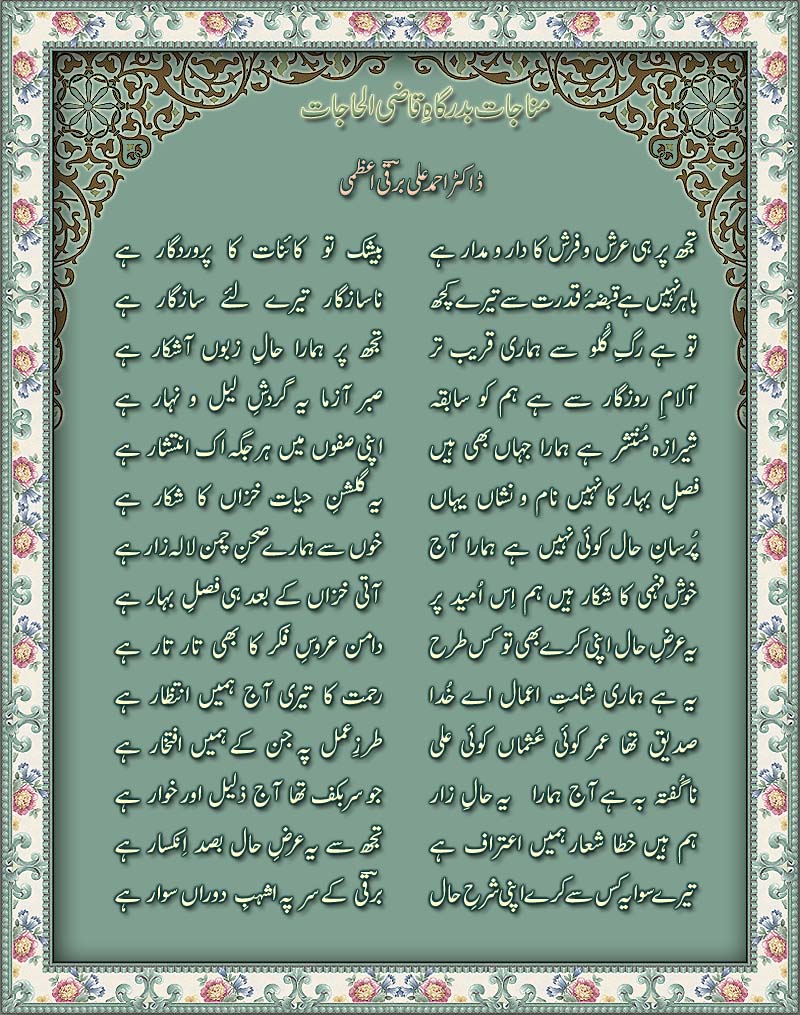 مناجات بدرگاہِ قاضی الحاجات
ڈاکٹر احمد علی برقیؔ اعظمی
تجھ پر ہی عرش و فرش کا دار و مدار ہے بیشک تو کائنات کا پروردگار ہے
باہر نہیں ہے قبضۂ قدرت سے تیرے کچھ ناسازگار تیرے لئے سازگار ہے
تو ہے رگِ گُلو سے ہماری قریب تر تجھ پر ہمارا حالِ زبوں آشکار ہے
آلامِ روزگار سے ہے ہم کو سابقہ صبر آزما یہ گردشِ لیل و نہار ہے
شیرازہ مُنتشر ہے ہمارا جہاں بھی ہیں اپنی صفوں میں ہر جگہ اک انتشار ہے
فصلِ بہار کا نہیں نام و نشاں یہاں یہ گلشنِ حیات خزاں کا شکار ہے
پُرسانِ حال کوئی نہیں ہے ہمارا آج خوں سے ہمارے صحنِ چمن لالہ زار ہے
خوش فہمی کا شکار ہیں ہم اِس اُمید پر آتی خزاں کے بعد ہی فصلِ بہار ہے
یہ عرضِ حال اپنی کرے بھی تو کس طرح دامن عروسِ فکر کا بھی تار تار ہے
یہ ہے ہماری شامتِ اعمال اے خُدا رحمت کا تیری آج ہمیں انتظار ہے
صدیق تھا عمر کوئی عُثماں کوئی علی طرزِ عمل پہ جن کے ہمیں افتخار ہے
ناگُفتہ بہ ہے آج ہمارا یہ حالِ زار جو سر بکف تھا آج ذلیل اور خوار ہے
ہم ہیں خطا شعار ہمیں اعتراف ہے تجھ سے یہ عرضِ حال بصد اِنکسار ہے
تیرے سوا یہ کس سے کرے اپنی شرحِ حال برقیؔ کے سر پہ اشہبِ دوراں سوار ہے